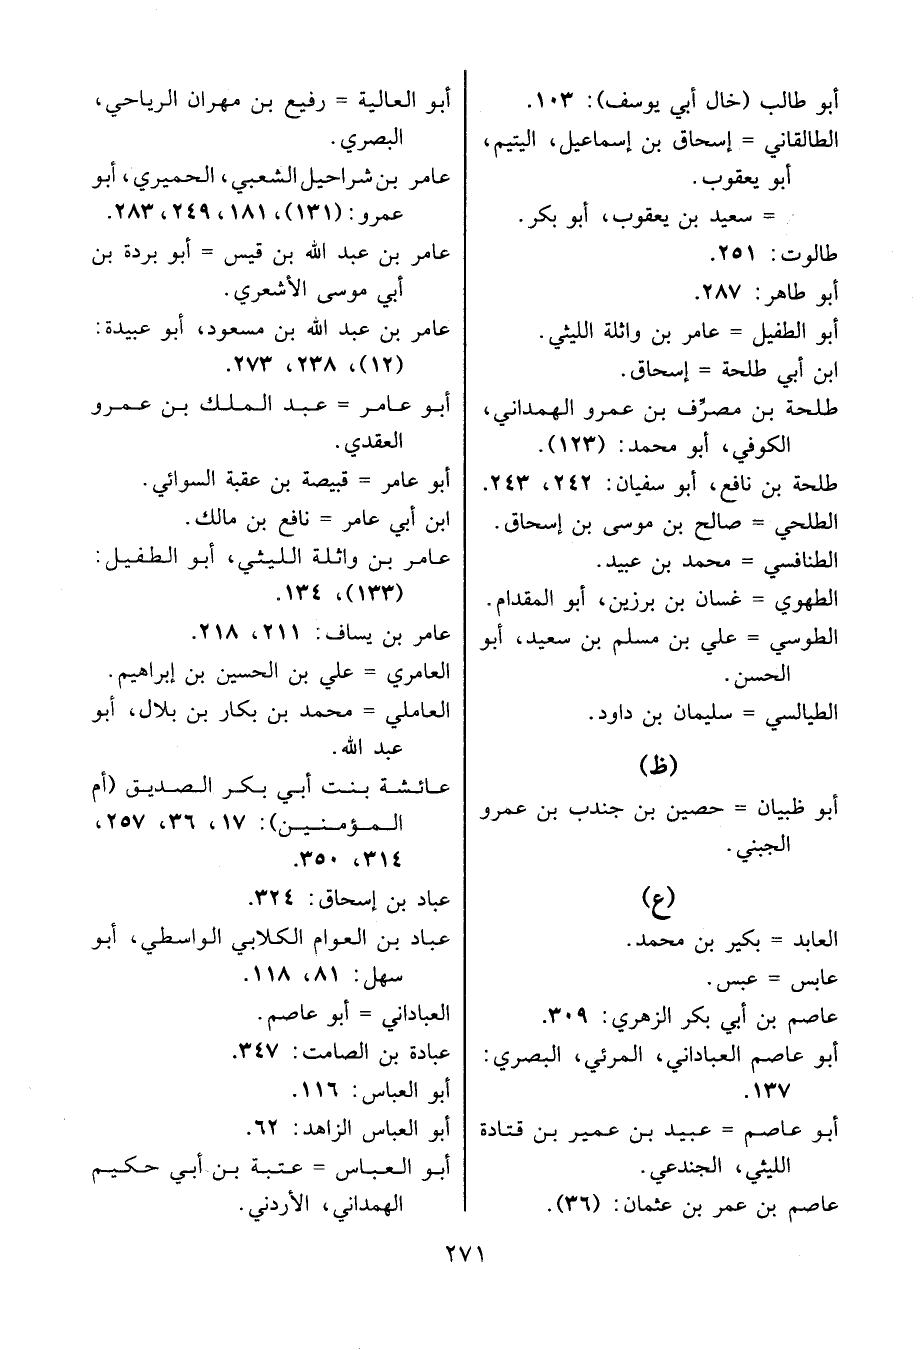 أبو طالب (خال أبي يوسف): ١٠٣.
الطالقاني = إسحاق بن إسماعيل، اليتيم،
أبو يعقوب.
= سعيد بن يعقوب، أبو بكر.
طالوت: ٢٥١.
أبو طاهر: ٢٨٧.
أبو الطفيل = عامر بن واثلة الليثي.
ابن أبي طلحة = إسحاق.
طلحة بن مصرِّف بن عمرو الهمداني،
الكوفي، أبو محمد: (١٢٣).
طلحة بن نافع، أبو سفيان: ٢٤٢، ٢٤٣.
الطلحي = صالح بن موسى بن إسحاق.
الطنافسي = محمد بن عبيد.
الطهوي = غسان بن برزين، أبو المقدام.
الطوسي = علي بن مسلم بن سعيد، أبو
الحسن.
الطيالسي = سليمان بن داود.
(ظ)
أبو ظبيان = حصين بن جندب بن عمرو
الجبني.
(ع)
العابد = بكير بن محمد.
عابس = عبس.
عاصم بن أبي بكر الزهري: ٣٠٩.
أبو عاصم العباداني، المرئي، البصري:
١٣٧.
أبو عاصم = عبيد بن عمير بن قتادة
الليثي، الجندعي.
عاصم بن عمر بن عثمان: (٣٦).
أبو العالية = رفيع بن مهران الرياحي،
البصري.
عامر بن شراحيل الشعبي، الحميري، أبو
عمرو: (١٣١)، ١٨١، ٢٤٩، ٢٨٣.
عامر بن عبد الله بن قيس = أبو بردة بن
أبي موسى الأشعري.
عامر بن عبد الله بن مسعود، أبو عبيدة:
(١٢)، ٢٣٨، ٢٧٣.
أبو عامر = عبد الملك بن عمرو
العقدي.
أبو عامر = قبيصة بن عقبة السوائي.
ابن أبي عامر = نافع بن مالك.
عامر بن واثلة الليثي، أبو الطفيل:
(١٣٣)، ١٣٤.
عامر بن يساف: ٢١١، ٢١٨.
العامري = علي بن الحسين بن إبراهيم.
العاملي = محمد بن بكار بن بلال، أبو
عبد الله.
عائشة بنت أبي بكر الصديق (أم
المؤمنين): ١٧، ٣٦، ٢٥٧،
٣١٤، ٣٥٠.
عباد بن إسحاق: ٣٢٤.
عباد بن العوام الكلابي الواسطي، أبو
سهل: ٨١، ١١٨.
العباداني = أبو عاصم.
عبادة بن الصامت: ٣٤٧.
أبو العباس: ١١٦.
أبو العباس الزاهد: ٦٢.
أبو العباس = عتبة بن أبي حكيم
الهمداني، الأردني.
٢٧١